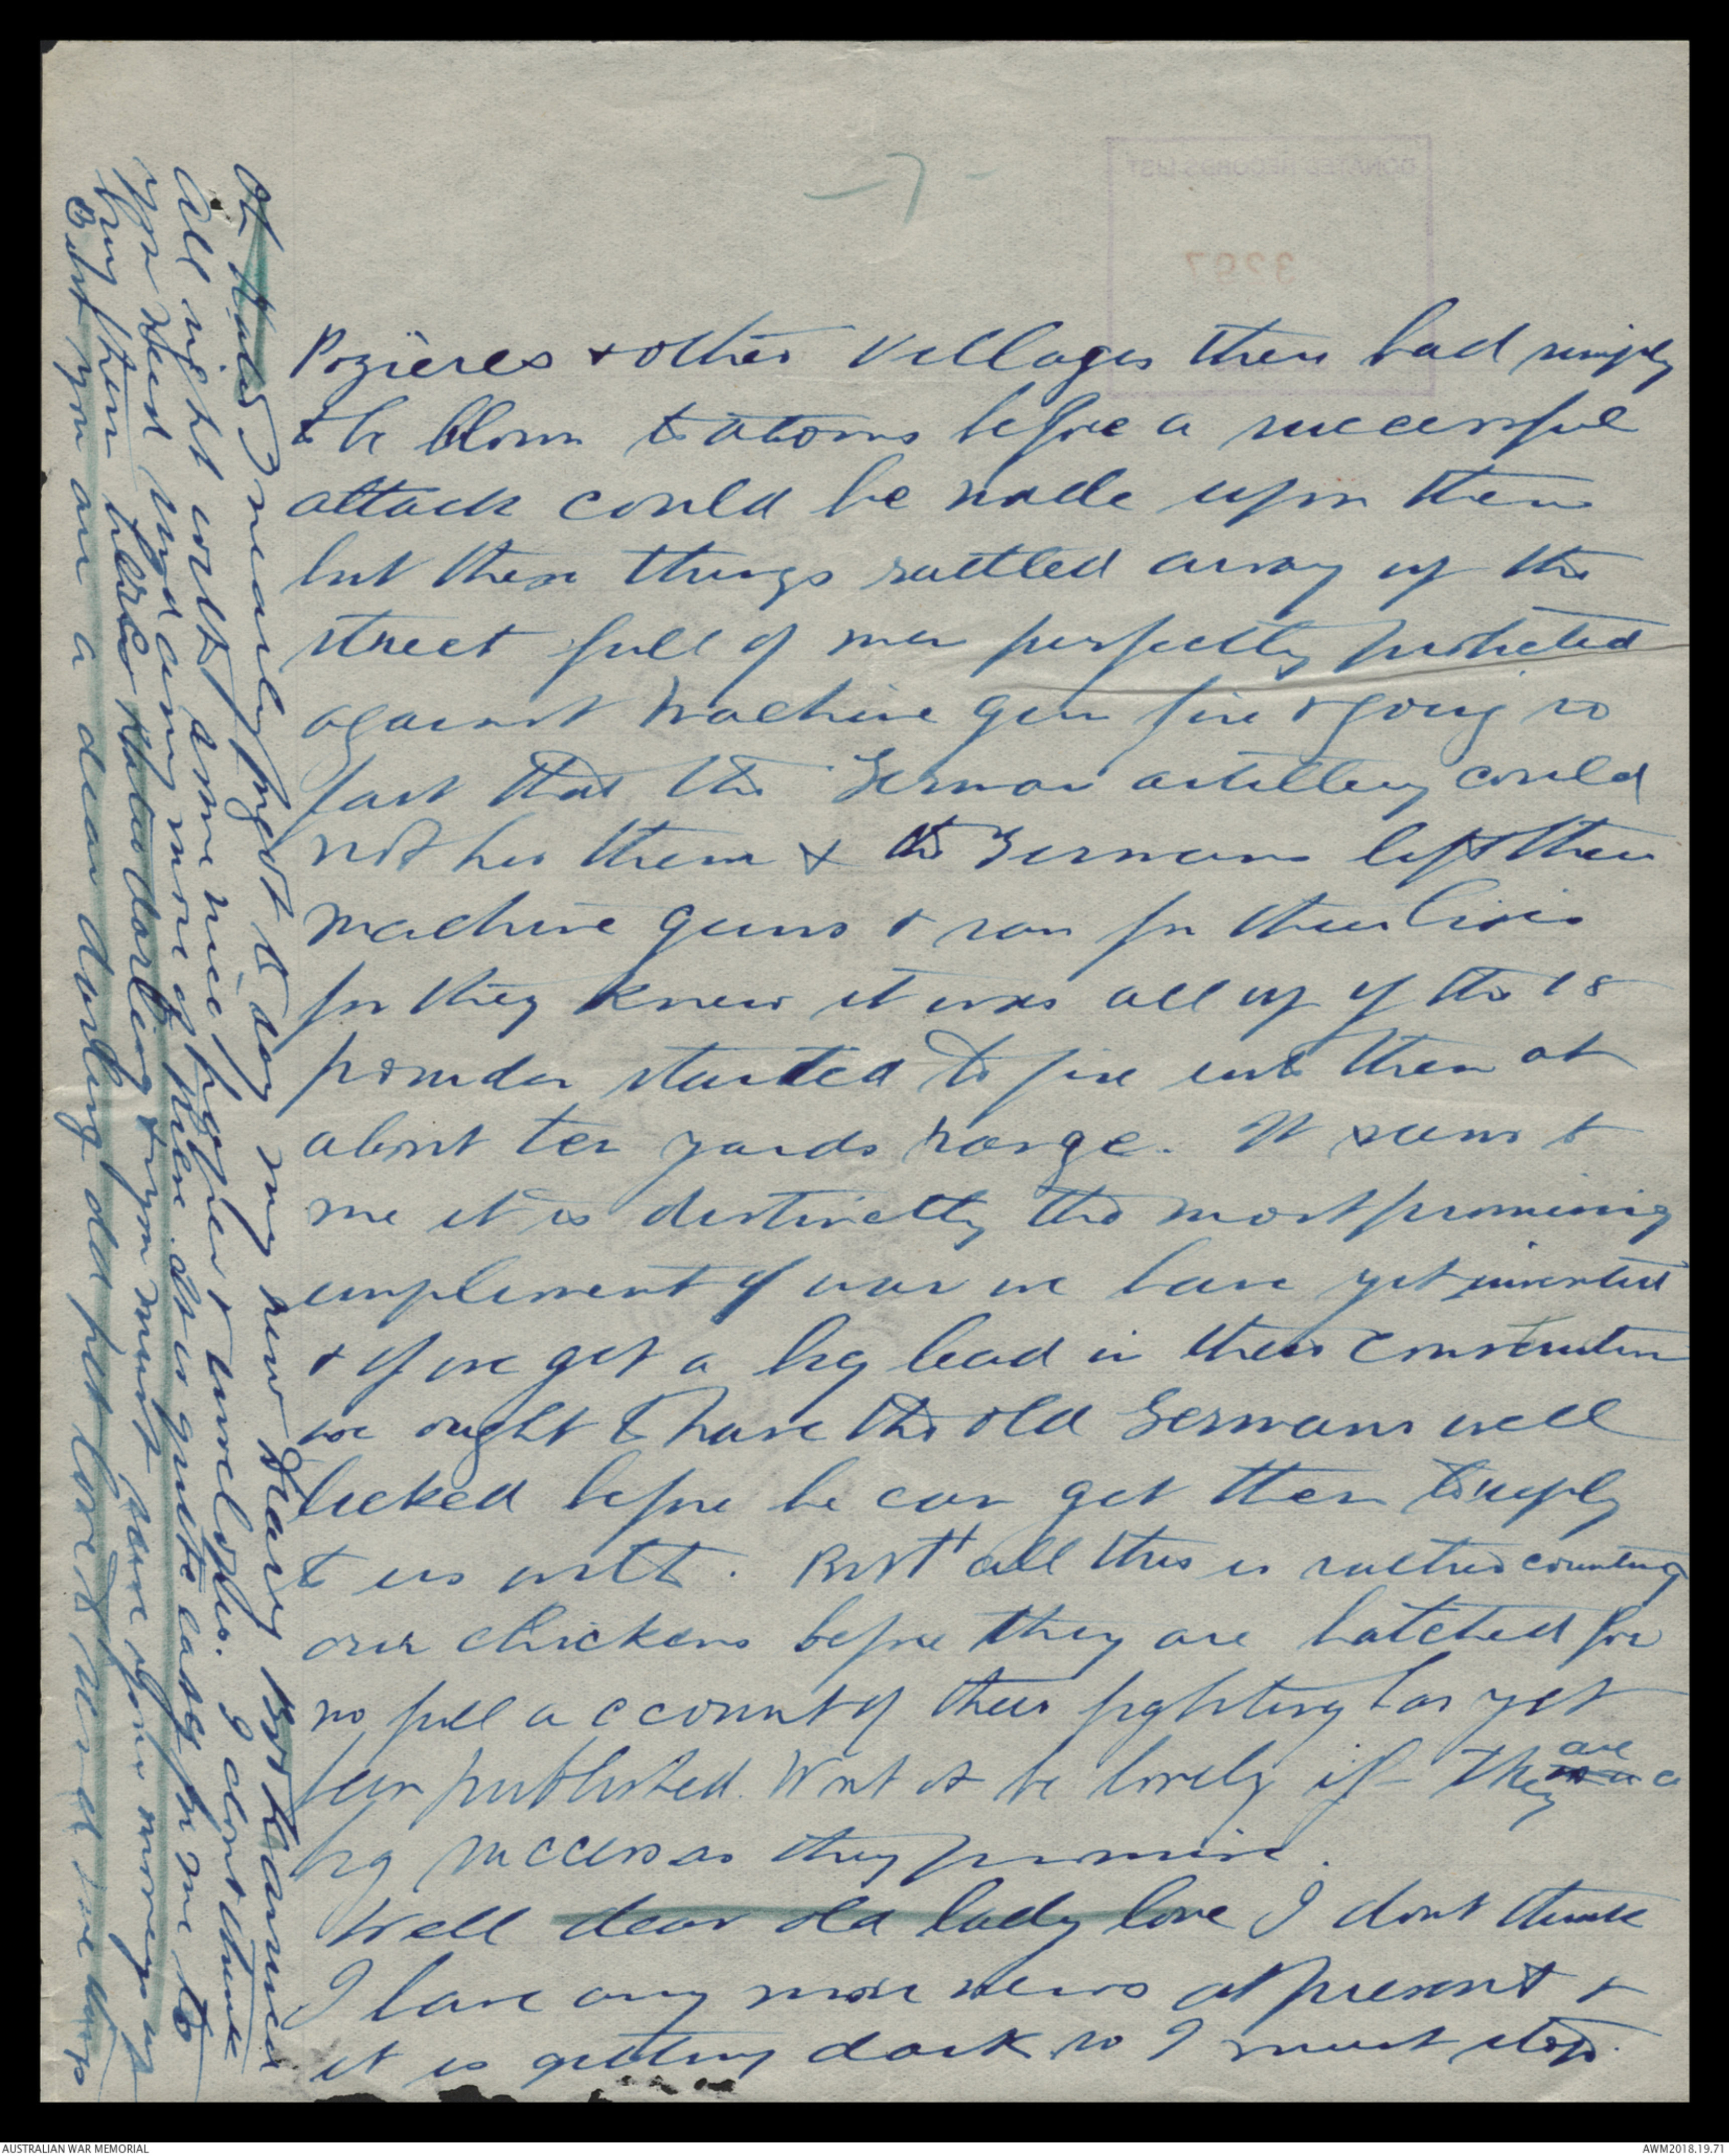 - 7 -
DONATED RECORDS LIST
3297
Pozieres & other villages there had simply
to be blown to atoms before a successful
attack could be made upon them
but these things rattled away up the
street full of men perfectly protected
against machine gun fire & going so
fast that the German artillery could
not hit them & the Germans left their
machine guns & ran for their lives
for they knew it was all up if the 18
pounder started to fire into them at
about ten yards range. It seems to
me it is distinctly the most promising
implement of war we have yet invented
& if we get a big lead in their construction
we ought to have the old Germans well
licked before he can get them to reply
to us with. But all this is rather counting
our chickens before they are hatched for
no full account of their fighting has yet
been published. Wont it be lovely if they are a
big success as they promise.
Well dear old lady love I dont think
I have any more news at present &
it is getting dark so I must stop.
Oh Katie I nearly forgot to say my new diary book arrived
all right with some nice paper & envelopes. I dont think
you need send any more of them. It is quite easy for me to
buy them here Katie darling & you must save your money up
But you are a dear darling old pet love to send me
AUSTRALIAN WAR MEMORIAL
AWM2018.19.71